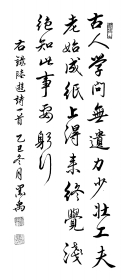 古人学问无遗力少壮工夫
老始成纸上得来终觉浅
绝知此事要躬行
右录陆游诗一首 乙巳冬月